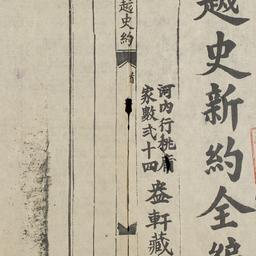 越史新約全編
河內行桃庯
家數弍十四
盎軒藏
越史約